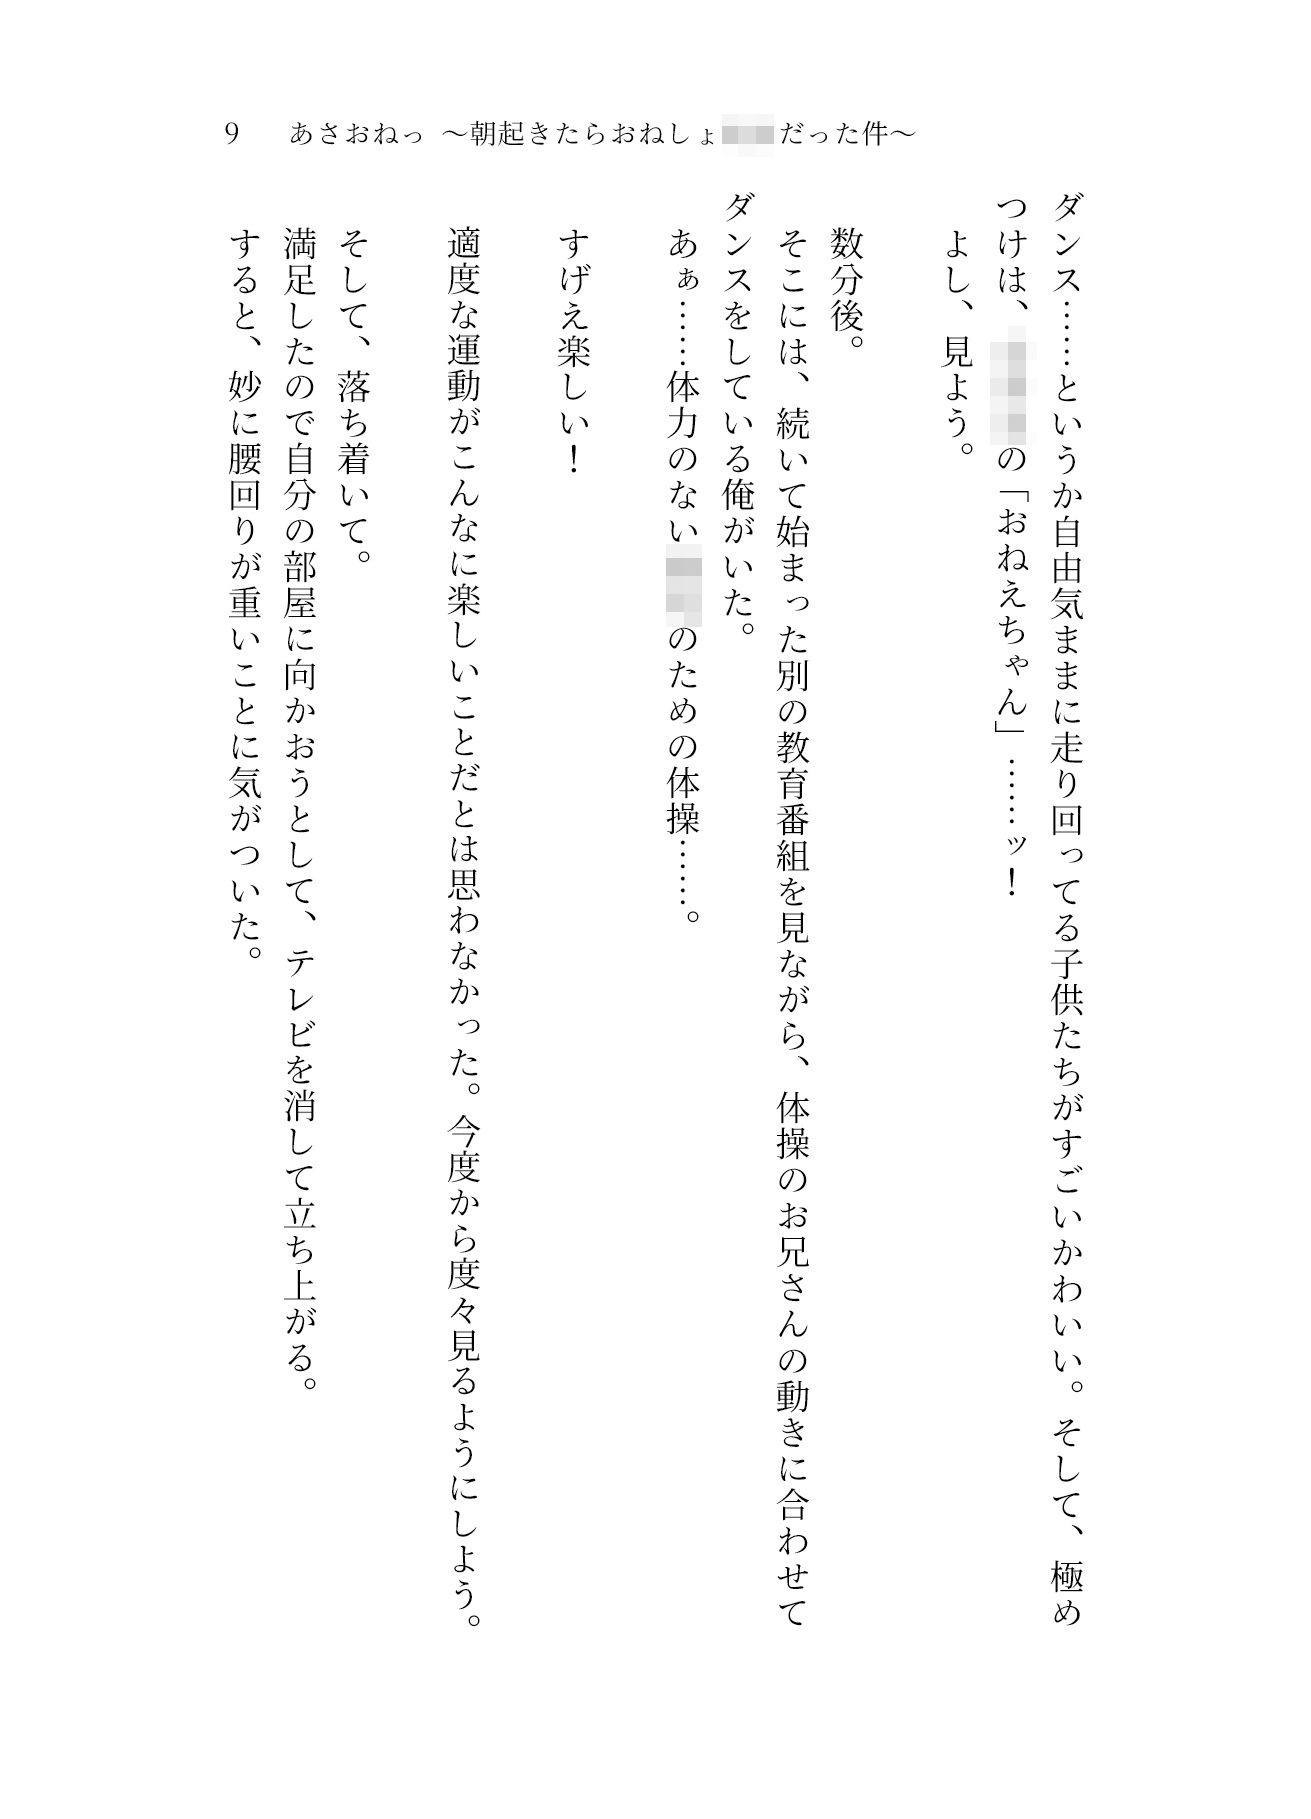 9 あさおねっ ～朝起きたらおねしょだった件～
ダンス……というか自由気ままに走り回ってる子供たちがすごいかわいい。そして、極め
つけは、の「おねえちゃん」……ッ！
よし、見よう。
数分後。
そこには、続いて始まった別の教育番組を見ながら、体操のお兄さんの動きに合わせて
ダンスをしている俺がいた。
あぁ……体力のないのための体操……。
すげえ楽しい！
適度な運動がこんなに楽しいことだとは思わなかった。今度から度々見るようにしよう。
そして、落ち着いて。
満足したので自分の部屋に向かおうとして、テレビを消して立ち上がる。
すると、妙に腰回りが重いことに気がついた。